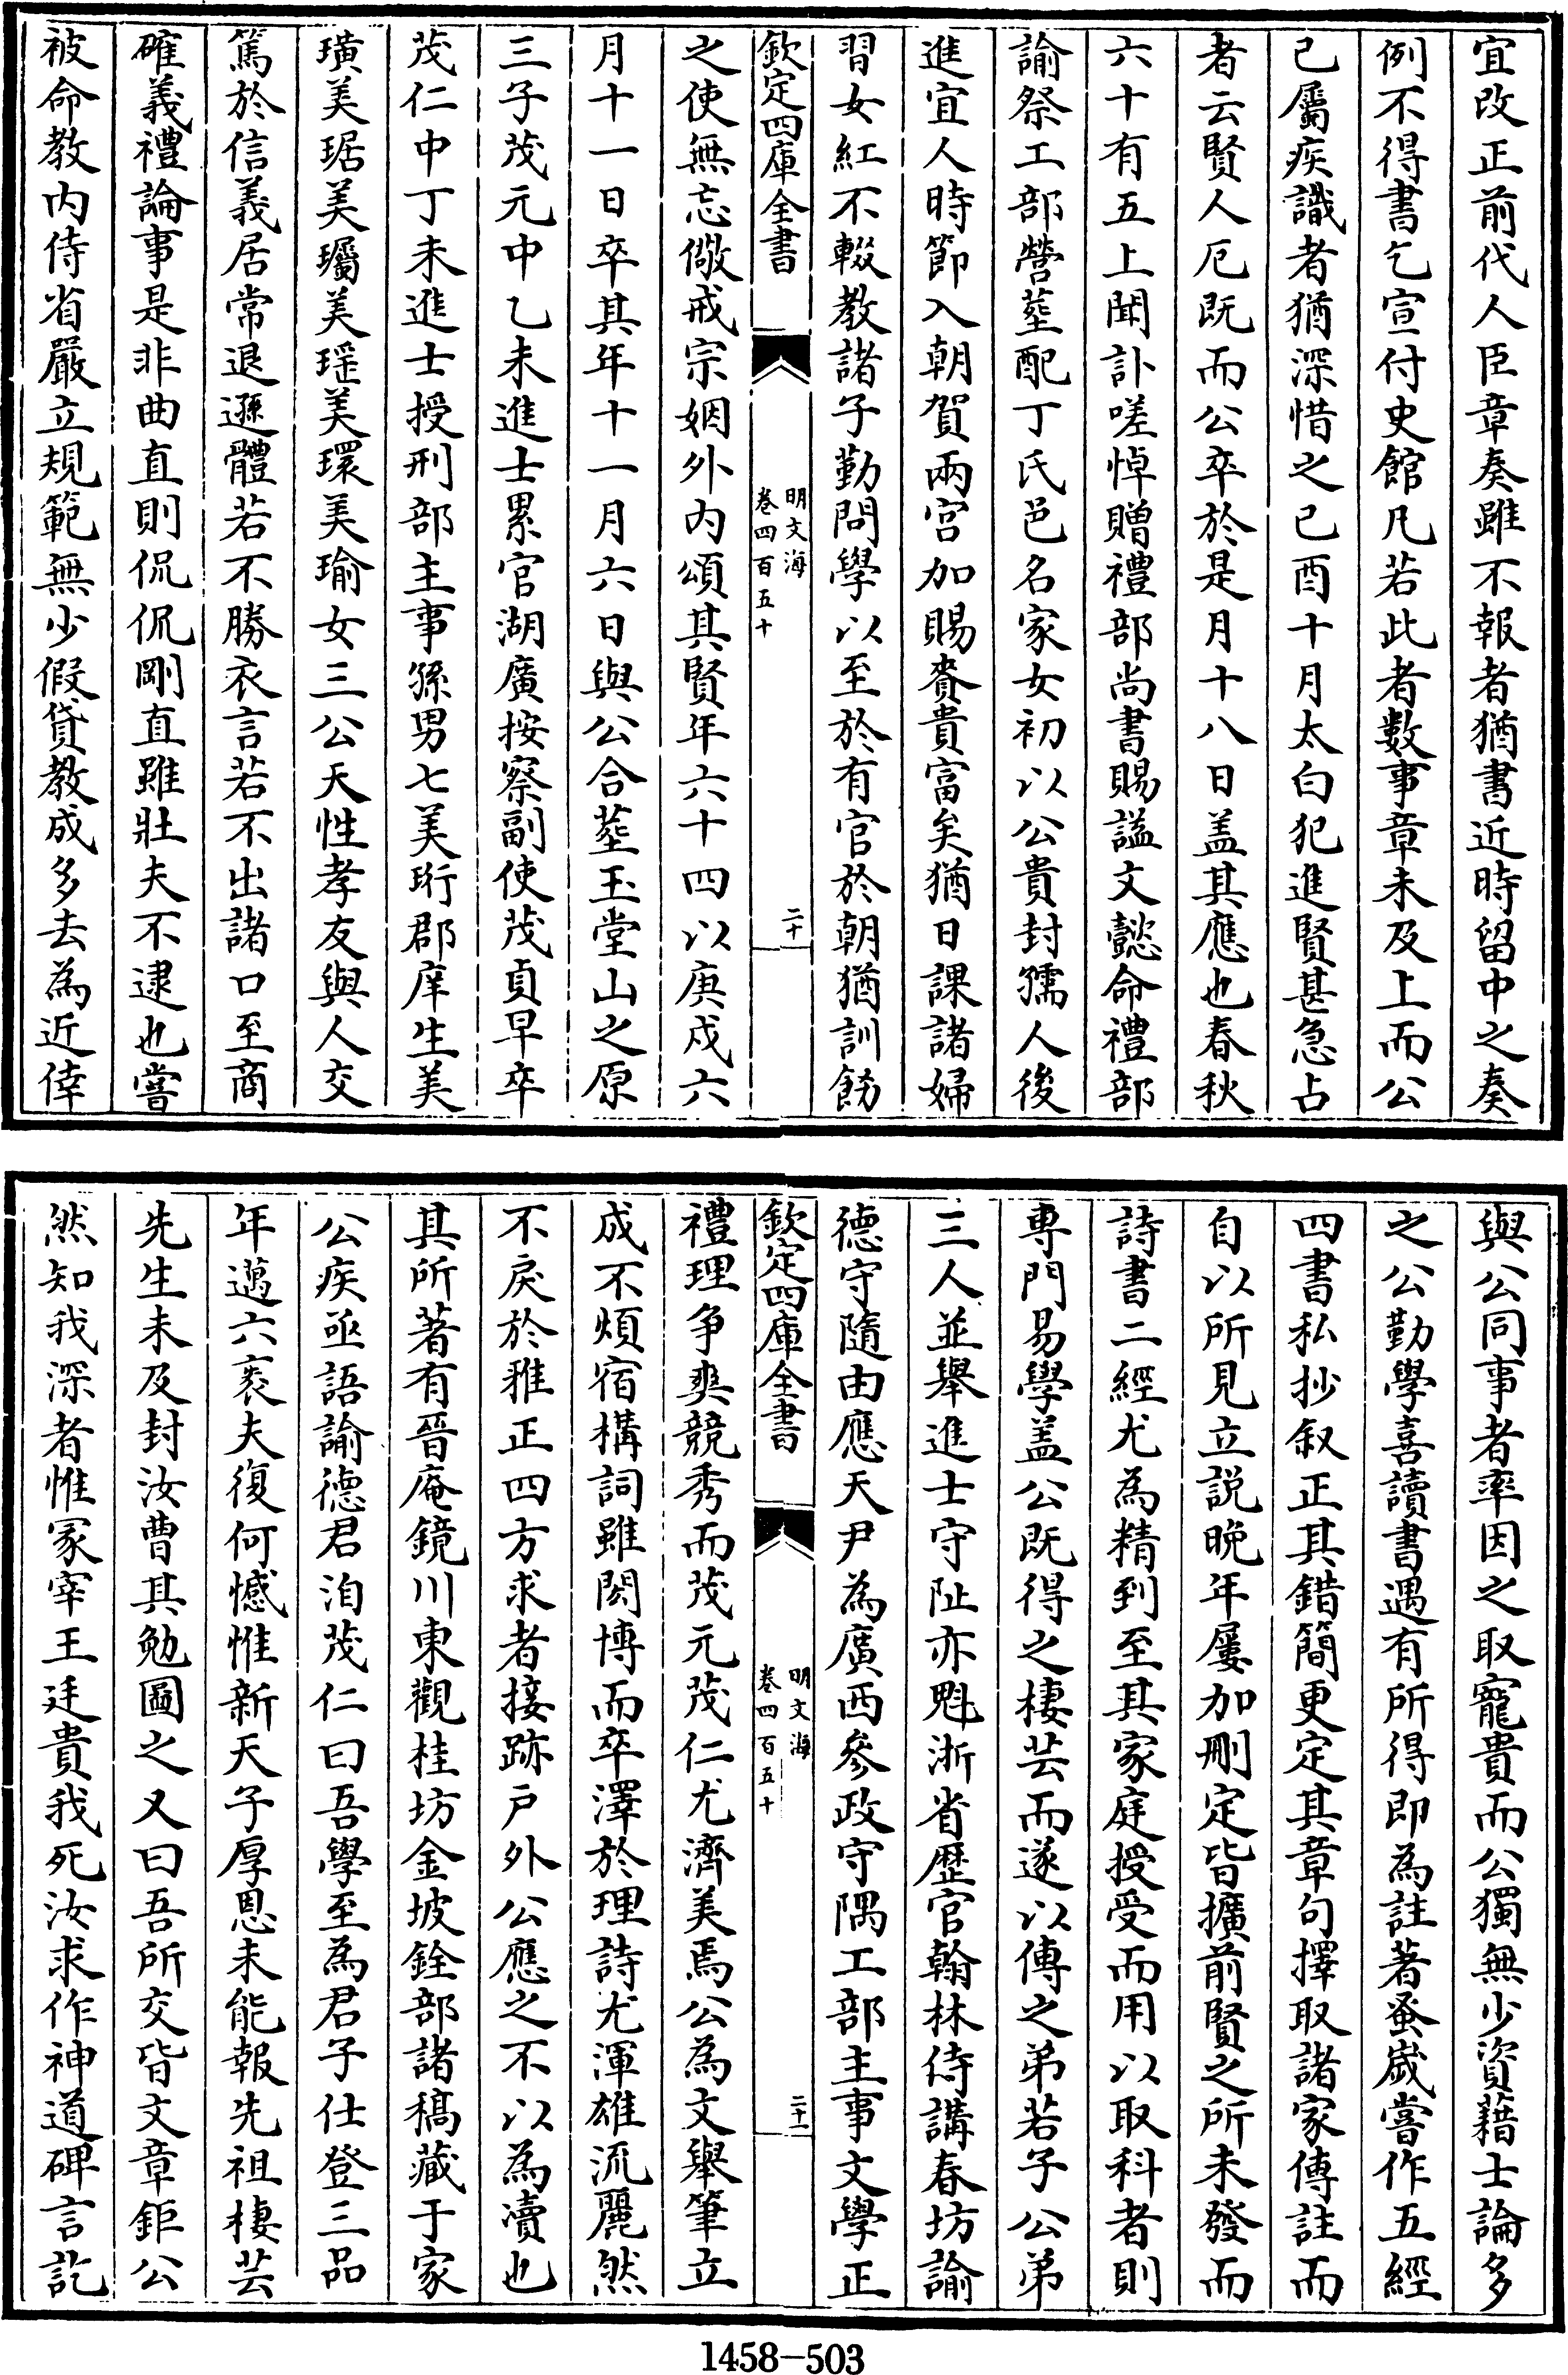 宜改正前代人臣章奏雖不報者猶書近時留中之奏
例不得書乞宣付史館凡若此者數事章未及上而公
已屬疾識者猶深惜之已酉十月太白犯進賢甚急占
者云賢人厄既而公卒於是月十八日盖其應也春秋
六十有五上聞訃嗟悼贈禮部尚書賜諡文懿命禮部
諭祭工部營塟配丁氏邑名家女初以公貴封孺人後
進宜人時節入朝賀兩宫加賜賚貴富矣猶日課諸婦
習女紅不輟教諸子勤問學以至於有官於朝猶訓飭
欽定四庫全書
明文海
卷四百五十
二十
之使無忘儆戒宗姻外内頌其賢年六十四以庚戍六
月十一日卒其年十一月六日與公合塟玉堂山之原
三子茂元中乙未進士累官湖廣按察副使茂貞早卒
茂仁中丁未進士授刑部主事孫男七美珩郡庠生美
璜美琚美瓛美瑶美環美瑜女三公天性孝友與人交
篤於信義居常退遜體若不勝衣言若不出諸口至商
確義禮論事是非曲直則侃侃剛直雖壯夫不逮也嘗
被命教内侍省嚴立規範無少假貸教成多去為近倖
與公同事者率因之取寵貴而公獨無少資藉士論多
之公勤學喜讀書遇有所得即為註著蚤嵗嘗作五經
四書私抄叙正其錯簡更定其章句擇取諸家傳註而
自以所見立説晚年屢加刪定皆擴前賢之所未發而
詩書二經尤為精到至其家庭授受而用以取科者則
専門易學盖公既得之棲芸而遂以傳之弟若子公弟
三人並舉進士守阯亦魁浙省歴官翰林侍講春坊諭
德守隨由應天尹為廣西參政守隅工部主事文學正
欽定四庫全書
明文海
卷四百五十
二十一
禮理争奭競秀而茂元茂仁尤濟美焉公為文舉筆立
成不煩宿構詞雖閎博而卒澤於理詩尤渾雄流麗然
不戾於雅正四方求者接跡戸外公應之不以為瀆也
其所著有晉庵鏡川東觀桂坊金坡銓部諸稿藏于家
公疾亟語諭德君洎茂仁曰吾學至為君子仕登三品
年邁六袠夫復何憾惟新天子厚恩未能報先祖棲芸
先生未及封汝曹其勉圖之又曰吾所交皆文章鉅公
然知我深者惟冢宰王廷貴我死汝求作神道碑言訖
1458-503